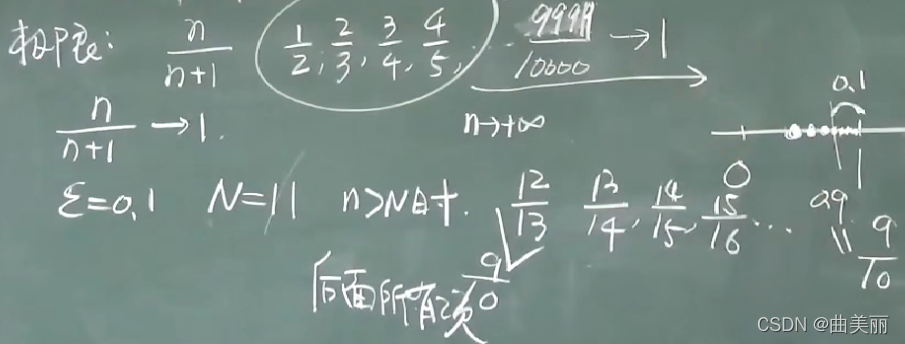 极限: n/(n+1) 1/2, 2/3, 3/4, 4/5, … 9999/10000 → 1
n/(n+1) → 1. n→+∞
0.1
0 1
ε=0.1 N=11 n>N时. 12/13 13/14, 14/15, 15/16 … 0.9 = 9/10
后面所有项 9/10
CSDN @曲美丽